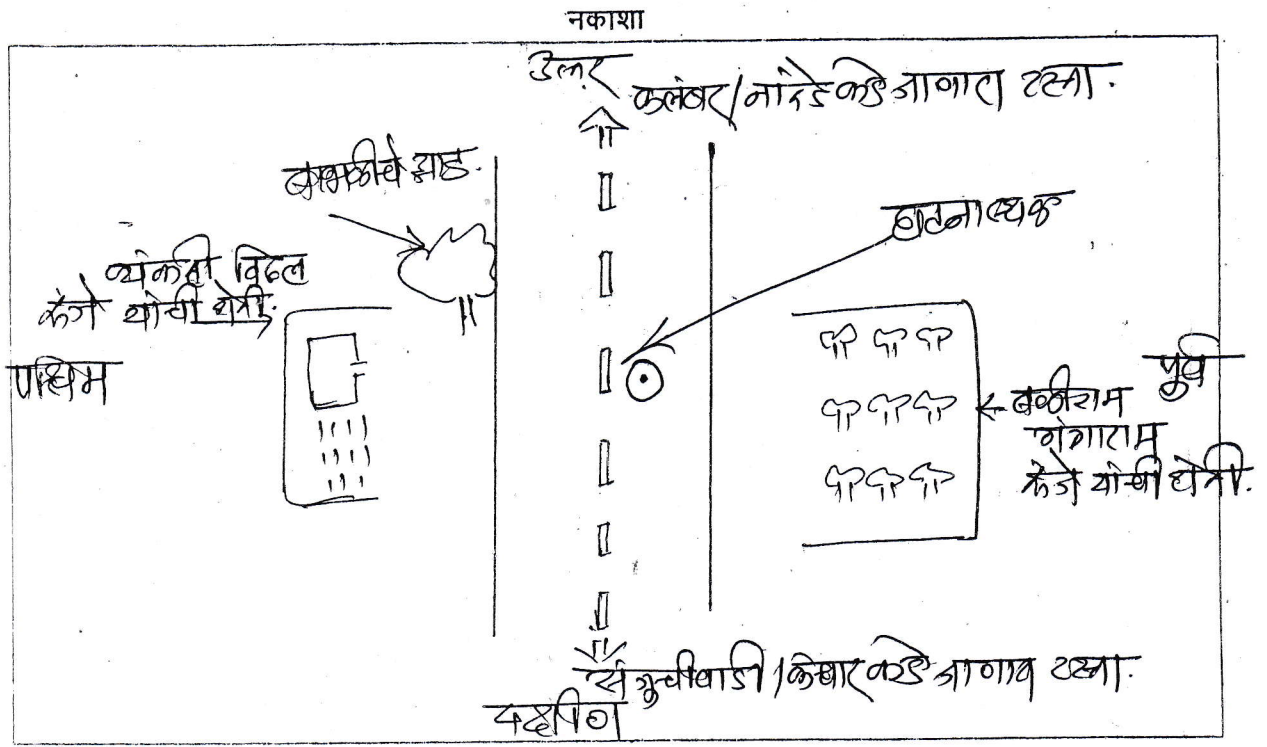 नकाशा
उत्तर
कलंबर/नांदेडकडे जाणारा रस्ता.
बाभळीचे झाड.
घटनास्थळ
व्यंकटी विठ्ठल
केंजे यांची शेती.
पश्चिम
पुर्व
बळीराम
गंगाराम
केंजे यांची शेती.
कडे जाणारा रस्ता.
दक्षिण